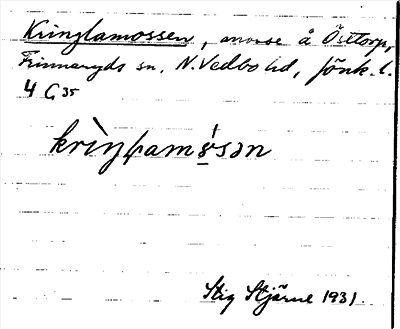 Kringlamossen, mosse å Östtorp,
Finnaryds sn. N. Vedbo hd, Jönk. l.
4 G 35
krìŋɫamɷ́sən
Stig Stjärne 1931.